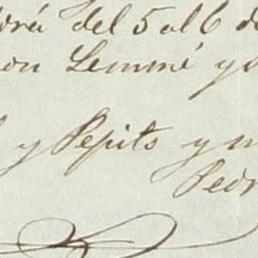 del 5 al 6 de
Lemmé y
y Pepito y
Pedr